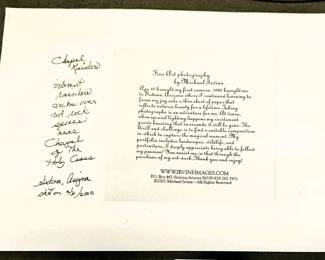 Chapel
Rainbow
vibrant
rainbow
archs over
red rock
spires
near
Chapel
of The
Holy Cross
Sedona, Arizona
Fine Art photography
by Michael Irvine
Age 10 brought my first camera. 1992 brought me
to Sedona, Arizona where I continued learning to
focus my joy onto a thin sheet of paper that
reflects natures beauty for a lifetime. Taking
photographs is an adventure for
when special lighting happens my excitement
grows knowing that in seconds it will be gone. The
thrill and challenge is to find a suitable composition
in which to capture the magical moment. My
portfolio includes landscapes, wildlife, and
portraiture. I deeply appreciate being able to follow
my passion! You assist me in that through the
purchase of my art work. Thank you and enjoy!
WWW.IRVINEIMAGES.COM
P.O. Box 465 Sedona, Arizona 86339
©2001 Michael Irvine - All Rights Reserved.